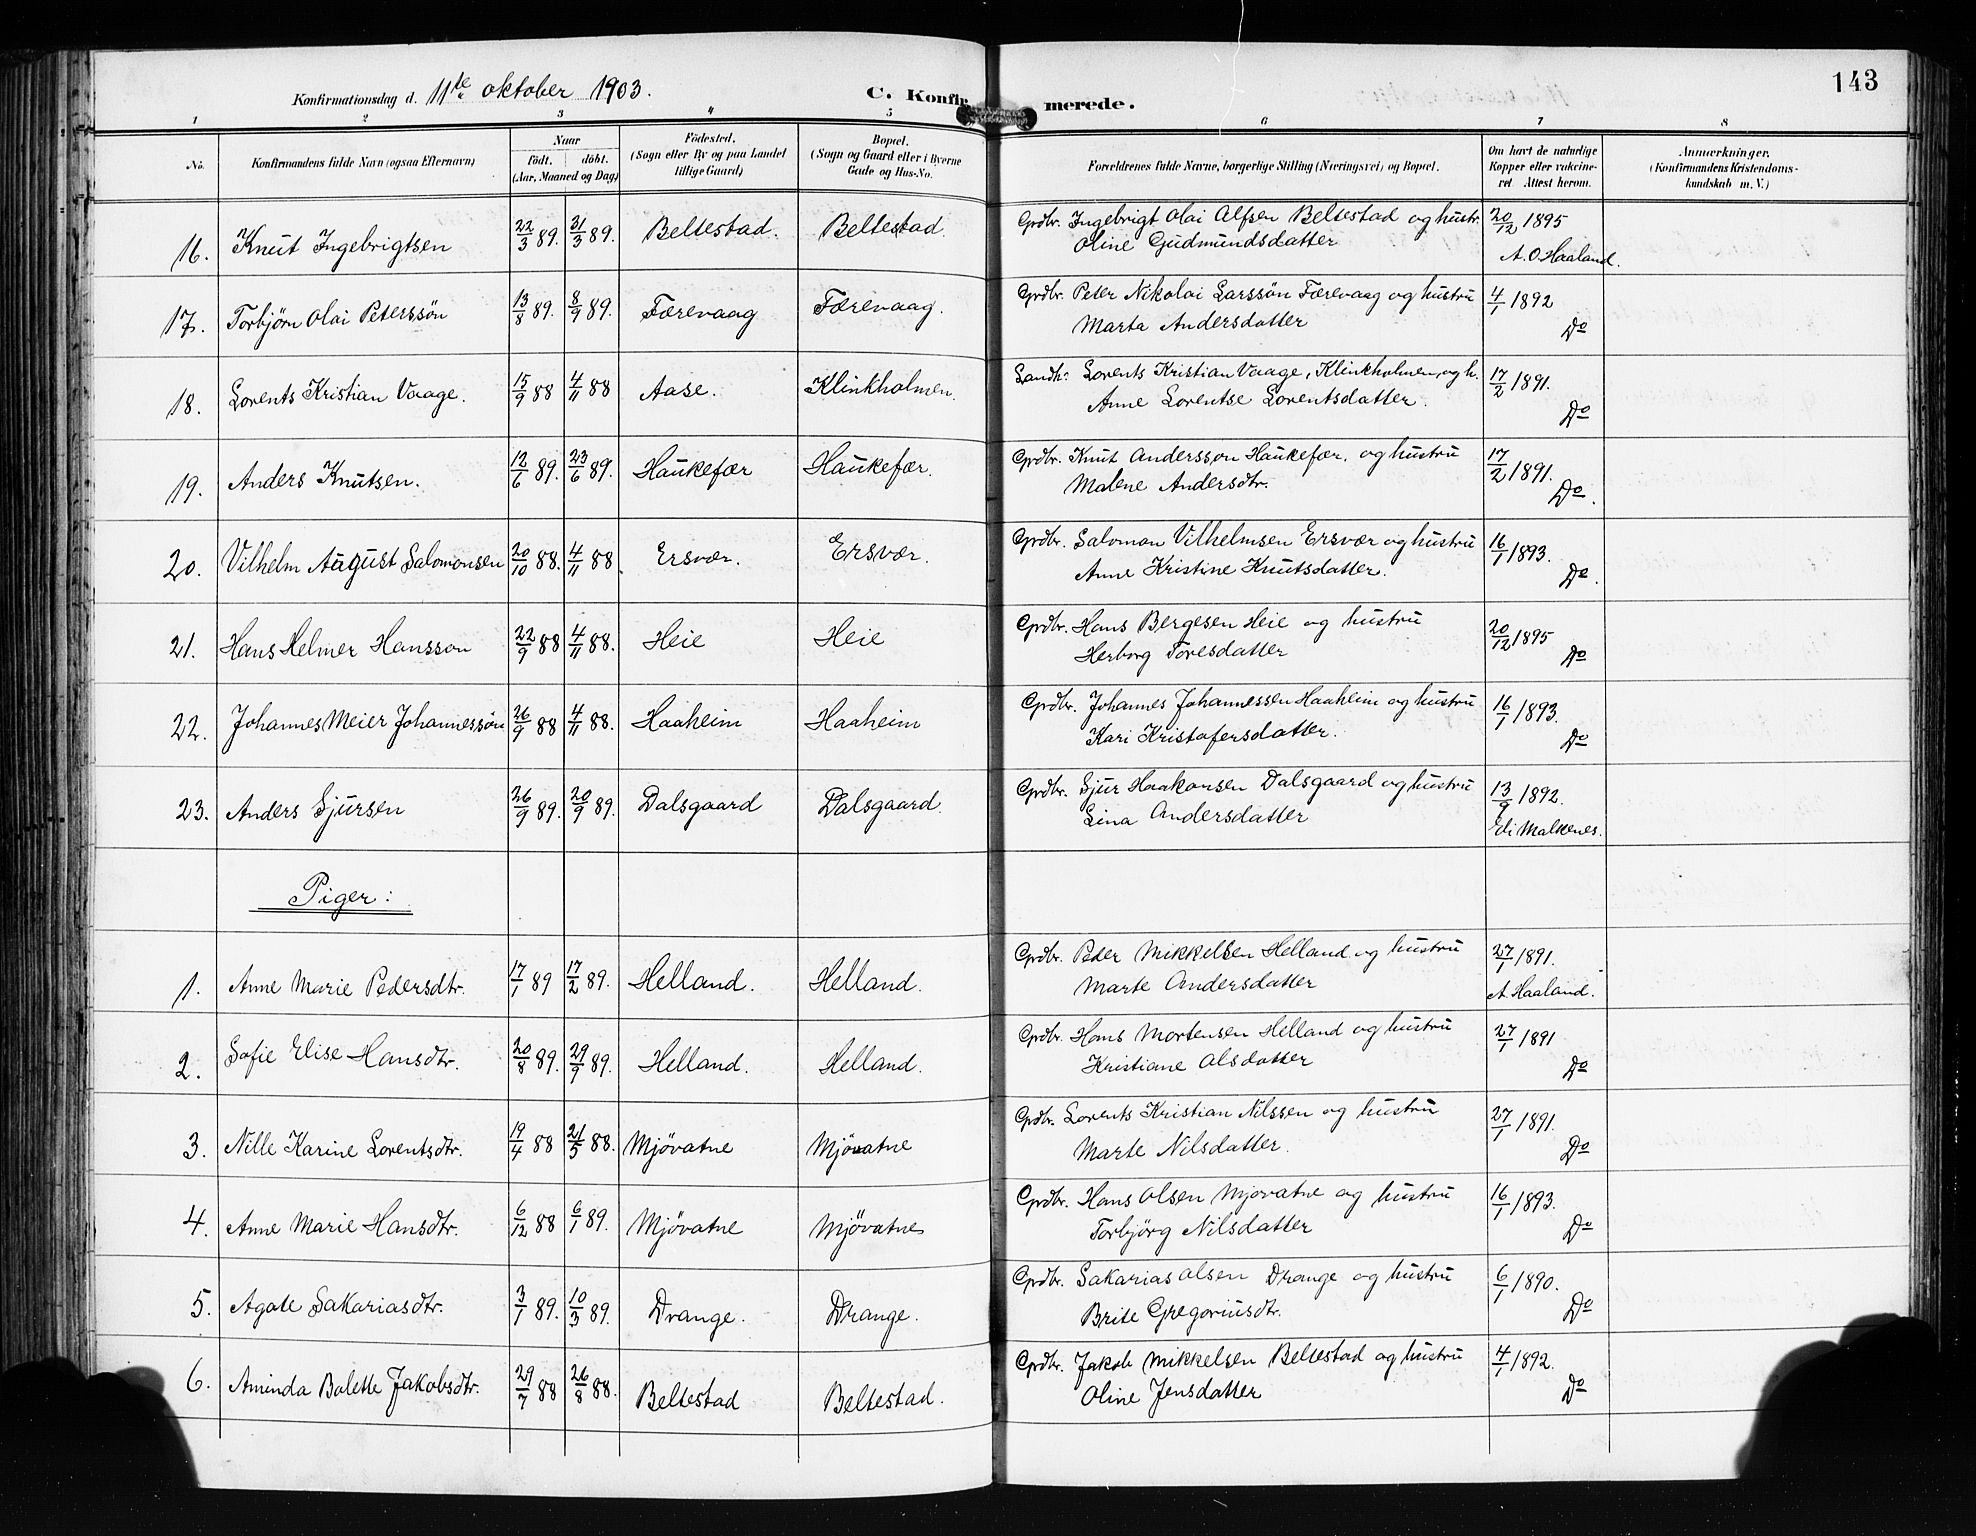 143
Konfirmationsdag d. 11te oktober 1903. C. Konfirmerede.
1 2 3 4 5 6 7 8
No. Konfirmandens fulde Navn (ogsaa Efternavn) Naar født. døbt. (Aar, Maaned og Dag) Fødested. (Sogn eller By og paa Landet tillige Gaard) Bopæl. (Sogn og Gaard eller i Byerne Gade og Hus-No. Forældrenes fulde Navne, borgerlige Stilling (Næringsvei) og Bopæl. Om havt de naturlige Kopper eller vakcineret. Attest herom. Anmærkninger. (Konfirmandens Kristendomskundskab m. V.)
16. Knut Ingebrigtsen 22/3 89. 31/3 89. Beltestad. Beltestad. Grdbr. Ingebrigt Olai Alfsen Beltestad og hustr. 20/12 1895
Oline Gudmundsdatter A. O. Haaland.
17. Torbjørn Olai Peterssön 13/8 89. 8/9 89. Færevaag Færevaag. Grdbr. Peter Nikolai Larssön Færevaag og hustru 4/1 1892
Marta Andersdatter Do
18. Lorents Kristian Vaage. 15/9 88 4/11 88 Aase. Klinkholmen. Landh. Lorents Kristian Vaage, Klinkholmen, og h. 17/2 1891.
Anne Lorentse Lorentsdatter. Do
19. Anders Knutsen. 12/6 89. 23/6 89. Haukefær Haukefær. Grdbr. Knut Andersson Haukefær. og hustru 17/2 1891.
Malene Andersdtr. Do.
20. Vilhelm August Salomonsen 20/10 88. 4/11 88. Ersvær. Ersvær. Grdbr. Salomon Vilhelmsen Ersvær og hustru 16/1 1893.
Anne Kristine Knutsdatter. Do.
21. Hans Helmer Hansson 22/9 88 4/11 88. Heie Heie Grdbr. Hans Bergesen Heie og hustru 20/12 1895
Herborg Toresdatter Do
22. Johannes Meier Johannessön 26/9 88 4/11 88. Haaheim Haaheim Grdbr. Johannes Johannessen Haaheim og hustru 16/1 1893.
Kari Kristofersdatter. Do
23. Anders Sjursen 26/9 89. 20/9 89. Dalsgaard Dalsgaard. Grdbr. Sjur Haakonsen Dalsgaard og hustru 13/9 1892.
Sina Andersdatter Eli Malkenes.
Piger:
1. Anne Marie Pedersdtr. 17/1 89 17/2 89. Helland. Helland. Grdbr. Peder Mikkelsen Helland og hustru 27/1 1891.
Marte Andersdatter A. Haaland.
2. Sofie Elise Hansdtr. 20/8 89. 29/9 89. Helland. Helland. Grdbr. Hans Mortensen Helland og hustru 27/1 1891
Kristiane Olsdatter Do
3. Nille Karine Lorentsdtr. 19/4 88 21/5 88. Mjövatne Mjövatne Grdbr. Lorents Kristian Nilssen og hustru 27/1 1891.
Marte Nilsdatter. Do
4. Anne Marie Hansdtr. 6/12 88 6/1 89. Mjövatne Mjövatne Grdbr. Hans Olsen Mjovatne og hustru 16/1 1893.
Torbjörg Nilsdatter Do
5. Agate Sakariasdtr. 3/1 89. 10/3 89. Drange. Drange. Grdbr. Sakarias Olsen Drange og hustru 6/1 1890.
Brite Gregoriusdtr. Do
6. Aminda Bolette Jakobsdtr. 29/7 88 26/8 88. Beltestad Beltestad. Grdbr. Jakob Mikkelsen Beltestad og hustru 4/1 1892.
Oline Jensdatter Do